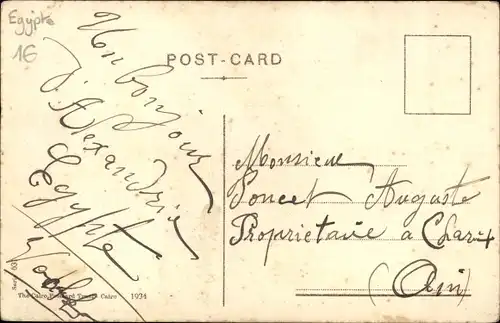 Egypte
16
POST-CARD
Un bonjour
d'Alexandrie
Egypte
Monsieur
Poncet Auguste
Proprietaire a Charix
(Ain)
The Cairo Postcard Trust, Cairo 1934